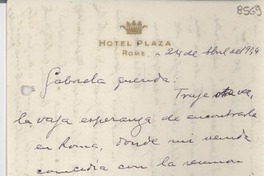 8569
HOTEL PLAZA
ROME, 24 de Abril del 954
Gabriela querida:
Traje otra vez,
la vaga esperanza de encontrarla
en Roma, donde mi venida
coincidía con la reunión